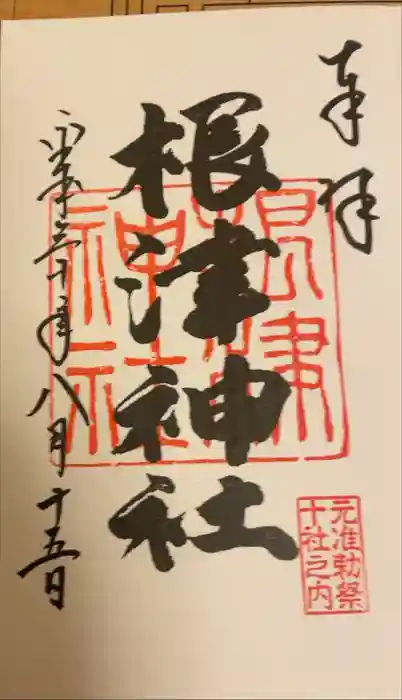 奉拝
根津神社
平成三十年八月十五日
根津神社
元准勅祭
十社之内